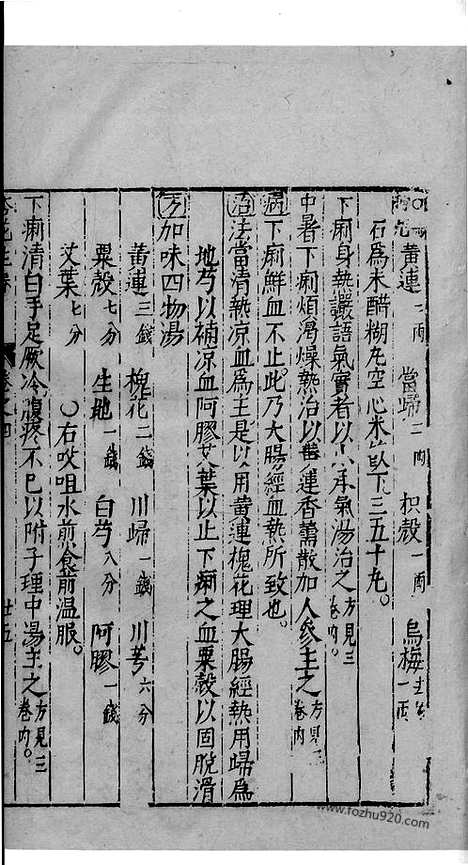 黃連二兩 當歸二兩 枳殼一兩 烏梅一兩
右為末醋糊丸空心米飲下三五十丸。
下痢身熱讝語氣實者以六承氣湯治之方見三
中暑下痢煩渴燥熱治以黃連香薷散加人參主之方見三卷內
病下痢鮮血不止此乃大腸經血熱所致也。
治法當清熱凉血為主是以用黃連槐花理大腸經熱用歸為
地芍以補凉血阿膠艾葉以止下痢之血粟殼以固脫滑
方加味四物湯
黃連三錢 槐花二錢 川歸一錢 川芎六分
粟殼七分 生地一錢 白芍八分 阿膠一錢
艾葉七分 ○右㕮咀水煎食前溫服。
下痢清白手足厥冷腹疼不已以附子理中湯主之方見三卷內。
卷之四 廿五
www.fozhu920.com